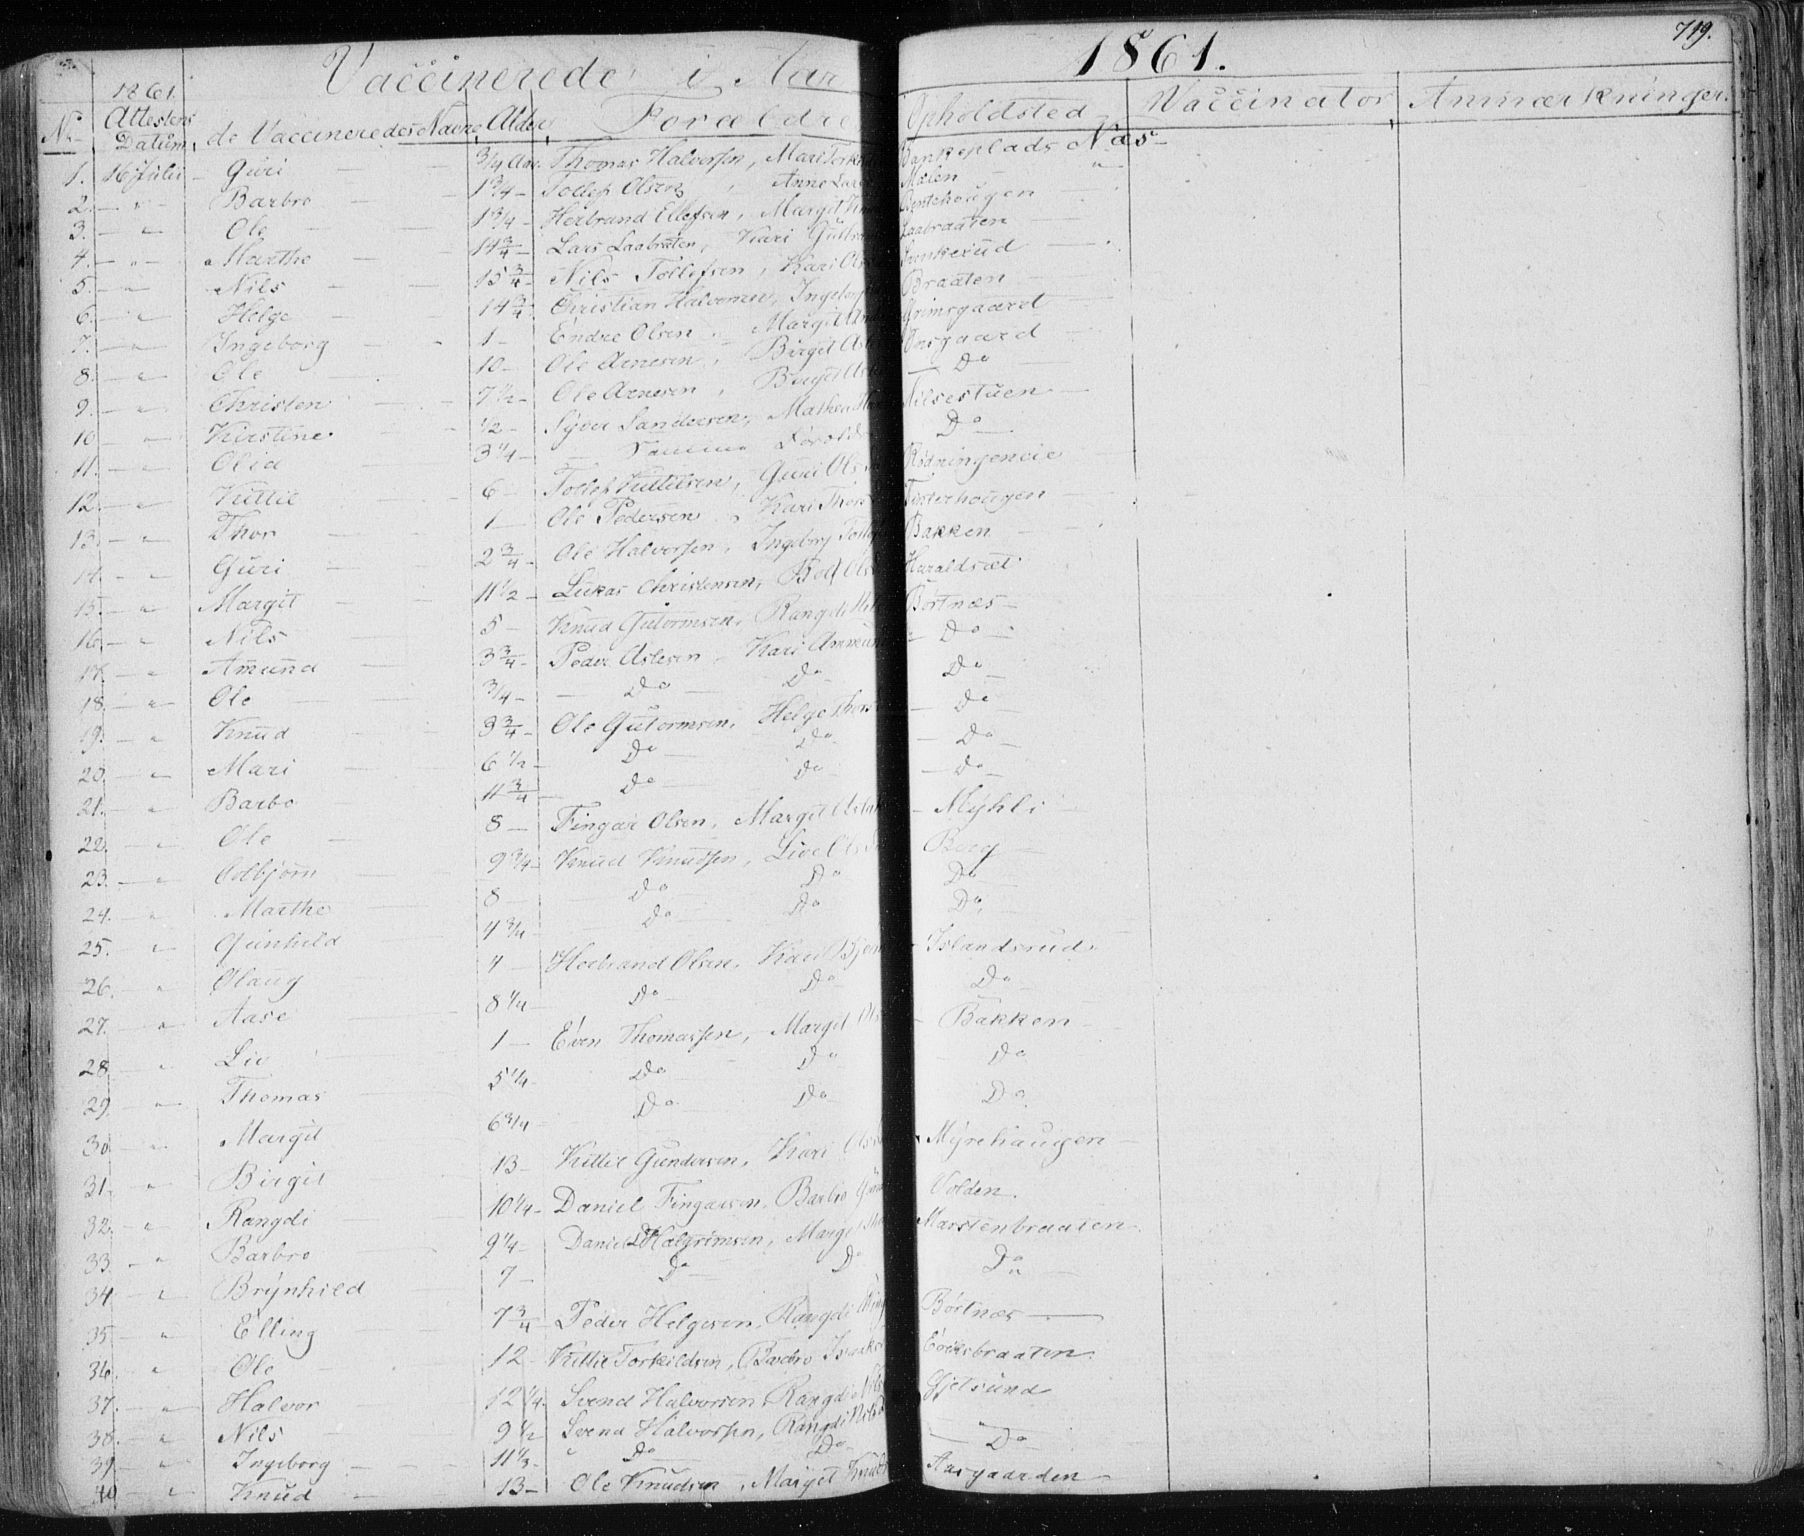 Vaccinerede i Aar 1861. 719.
1861.
No Attestens Datum, de Vaccineredes Navne, Alder, Forældre Opholdsted Vaccinator Anmærkninger.
1. 16 Julii - Guri - 3/4 Aar. Thomas Halvorsen, Mari Torkel Bankeplads Næs -
2. - " - Barbro - 1 3/4 - Tollef Olsen, Anne Lars Mælen - "
3. - " - Ole - 1 3/4 - Herbrand Ellefsen, Margit
4. - " - Marthe - 14 3/4 - Lars Laabraten, Kari Laabraaten
5. - " - Nils - 15 3/4 - Nils Tollefsen, Kari Ols
6. - " - Helge - 14 3/4 - Christian Halvorsen, Ingeborg Braaten
7. - " - Ingeborg - 1 - Endre Olsen, Margit Grimsgaard
8. - " - Ole - 10 - Ole Arnesen, Birgit Onsgaard
9. - " - Christen - 7 1/2 - Ole Arnesen, Birgit Do
10 - " - Kirstine - 1/2 - Syver Sandersen, Mathea Nilsestuen -
11. - " - Olia - 3 1/4 - Samme Foreldre Do
12. - " - Kittil - 6 - Tollef Kittilsen, Guri Ols Rødningeneie -
13. - " - Thor - 1 - Ole Pedersen, Kari Thors Tristerhougen
14. - " - Guri - 2 3/4 - Ole Halvorsen, Ingeborg Tollef Bakken -
15. - " - Margit - 11 1/2 - Lukas Christensen, Haraldset
16. - " - Nils - 5 - Knud Gutormsen, Rangdi Børtnæs -
17. - " - Amund - 3 3/4 - Peder Aslesen, Kari Ammun Do -
18. - " - Ole - 3/4 - Do - Do Do
19. - " - Knud - 3 3/4 - Ole Gutormsen, Helge Thors - Do
20. - " - Mari - 6 1/2 - Do Do - Do -
21. - " - Barbo - 11 3/4 - Do - Do - Do -
22. - " - Ole - 8 - Fingar Olsen, Margit - Myhli -
23. - " - Odbjørn - 9 3/4 - Knud Knudsen, Live Ols Berg -
24. - " - Marthe - 8 - Do Do Do
25. - " - Gunhild - 4 3/4 - Do - Do Do.
26. - " - Olaug - 4 - Herbrand Olsen, Kari Bjørn - Islandsrud.
27. - " - Aase - 8 1/4 - Do - Do - Do -
28. - " - Liv - 1 - Even Thomassen, Margit Ols - Bakken -
29. - " - Thomas - 5 1/4 - Do Do - Do
30. - " - Margit - 6 3/4 - Do - Do - Do -
31. - " - Birgit - 13 - Kittil Gundersen, Kari Ols Myrehaugen -
32. - " - Rangdi - 10 1/4 - Daniel Fingarsen, Barbro Gun Volden.
33. - " - Barbro - 9 1/4 - Daniel Halgrimsen, Margit Marstenbraaten
34 - " - Brynhild - 7 - Do - Do Do
35 - " - Elling - 7 3/4 - Peder Helgesen, Rangdi Børtnæs -
36. - " - Ole - 12 - Kittil Torkildsen, Barbro Isaaks Eriksbraaten.
37. - " - Halvor - 12 1/4. Svend Halvorsen, Rangdi Nils Gjelsund
38. - " - Nils - 9 1/2 Svend Halvorsen, Rangdi Nils - Do -
39 - " - Ingeborg - 11 1/3 - Do Do
40 - " - Knud - 13 - Ole Knudsen, Margit Knud Aasgaarden -